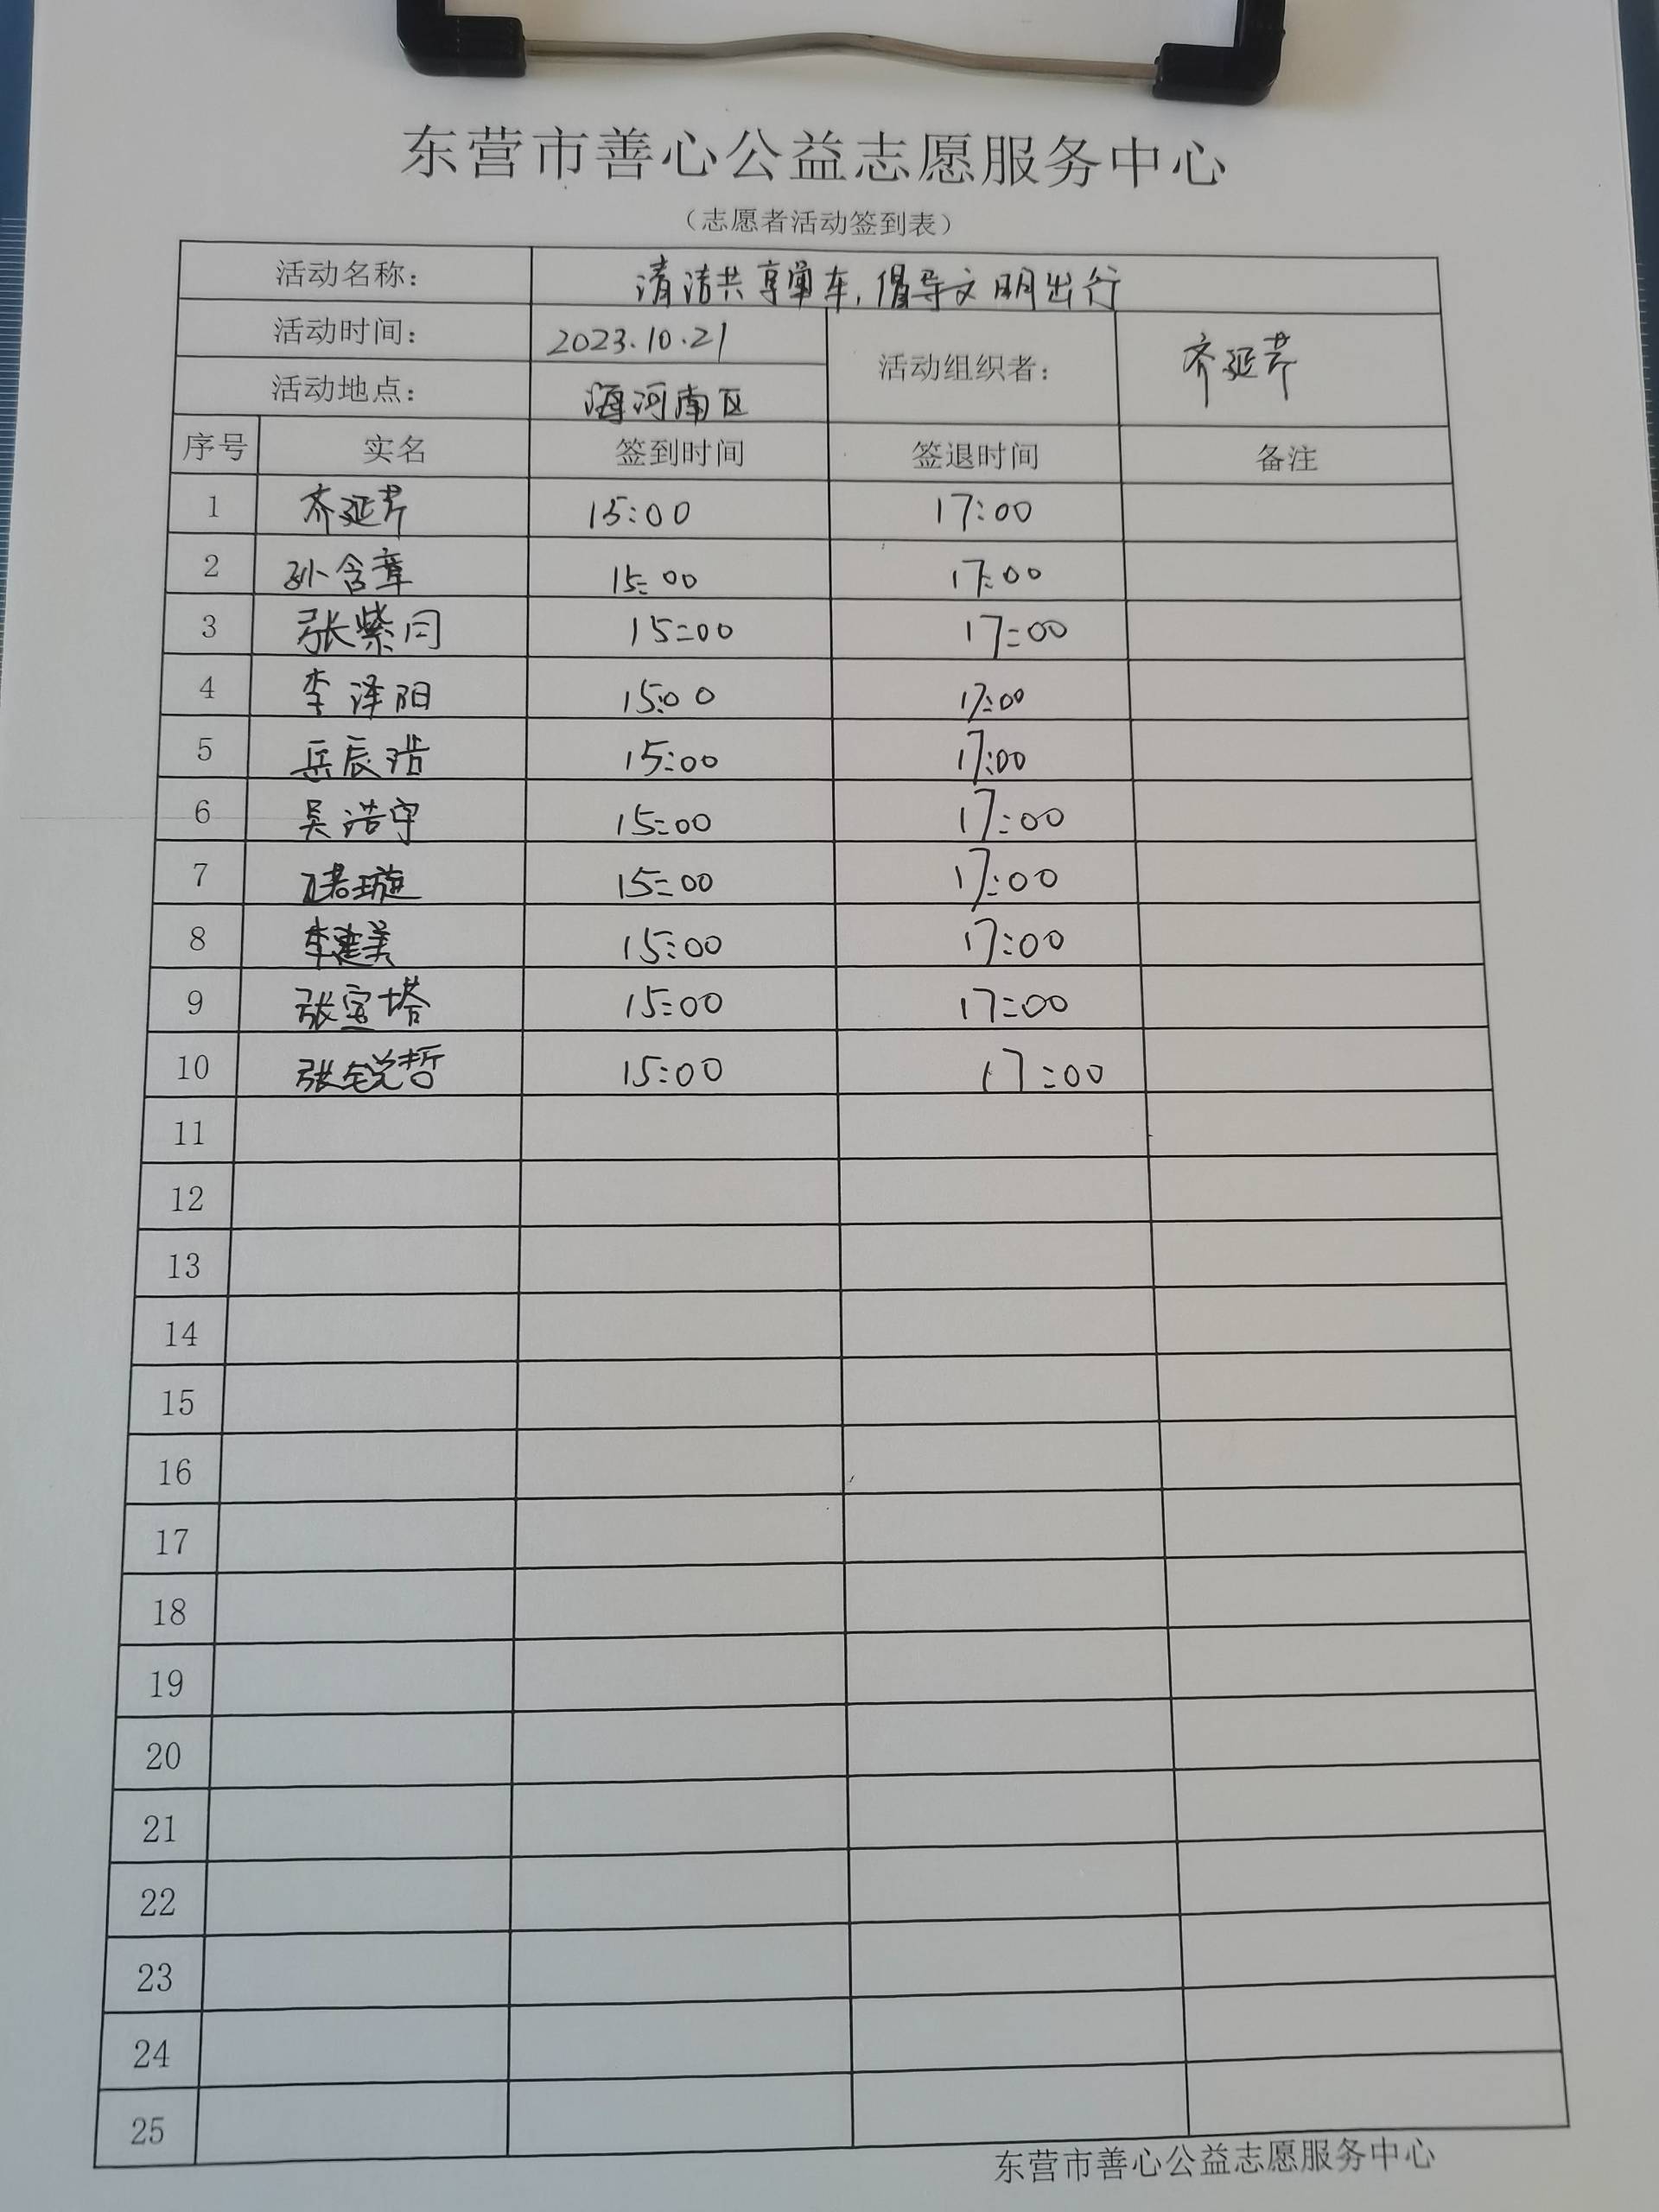 东营市善心公益志愿服务中心
（志愿者活动签到表）
活动名称： 清洁共享单车，倡导文明出行
活动时间： 2023.10.21 活动组织者： 齐延芹
活动地点： 海河南区
序号 实名 签到时间 签退时间 备注
1 齐延芹 15:00 17:00
2 孙含章 15:00 17:00
3 张紫同 15:00 17:00
4 李泽阳 15:00 17:00
5 岳辰浩 15:00 17:00
6 吴浩宇 15:00 17:00
7 15:00 17:00
8 李建美 15:00 17:00
9 张宝塔 15:00 17:00
10 张锐哲 15:00 17:00
11
12
13
14
15
16
17
18
19
20
21
22
23
24
25
东营市善心公益志愿服务中心